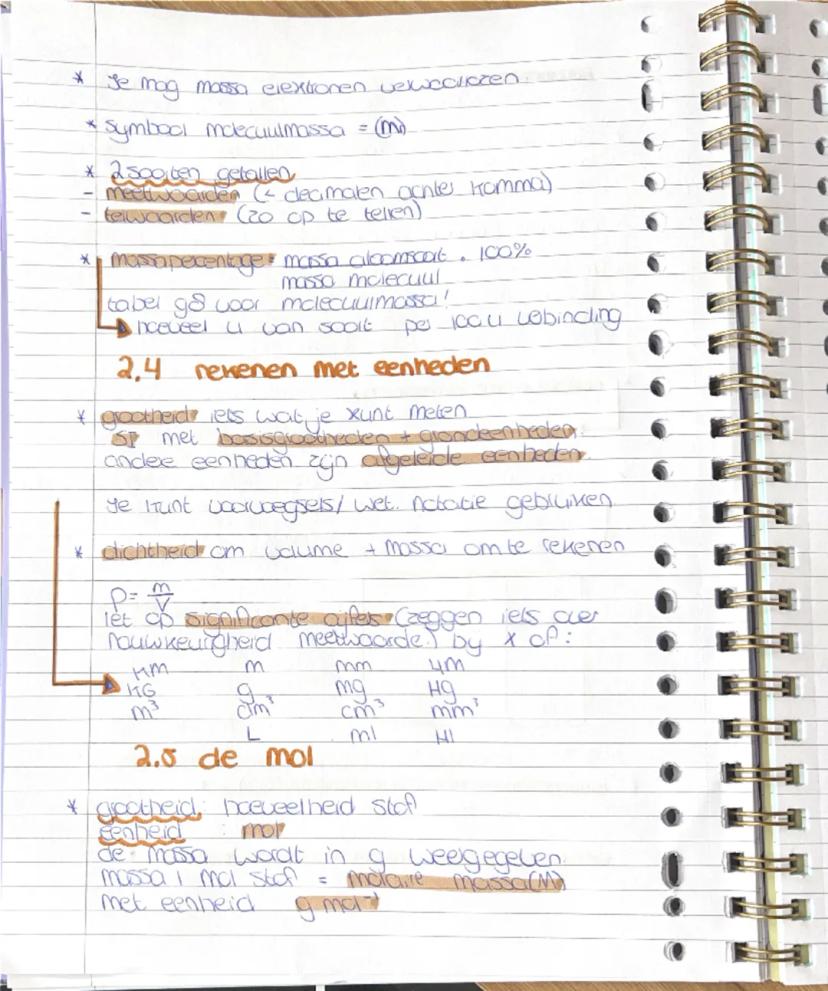 * Je mag massa elektronen verwaarlozen
* symbool molecuulmassa = (m)
* 2 soorten getallen
- meetwaarden (< decimalen achter komma)
- telwaarden (zo op te tellen)
* massapercentage = massa atoomsoort . 100%
massa molecuul
tabel 98 voor molecuulmassa!
hoeveel u van soort per 100u verbinding
2.4 rekenen met eenheden
* grootheid iets wat je kunt meten
SI met basisgrootheden + grondeenheden.
andere eenheden zijn afgeleide eenheden.
Je kunt voorvoegsels/ wet. notatie gebruiken
* dichtheid om volume + massa om te rekenen
ρ = m
V
let op significante cijfers (zeggen iets over
nauwkeurigheid meetwaarde.) by x of :
KM m mm μM
KG g mg μg
m³ dm³ cm³ mm³
L ml μl
2.5 de mol
* grootheid: hoeveelheid stof
eenheid : mol
de massa wordt in g weergegeven.
massa 1 mol stof = molaire massa (M)
met eenheid g mol⁻¹